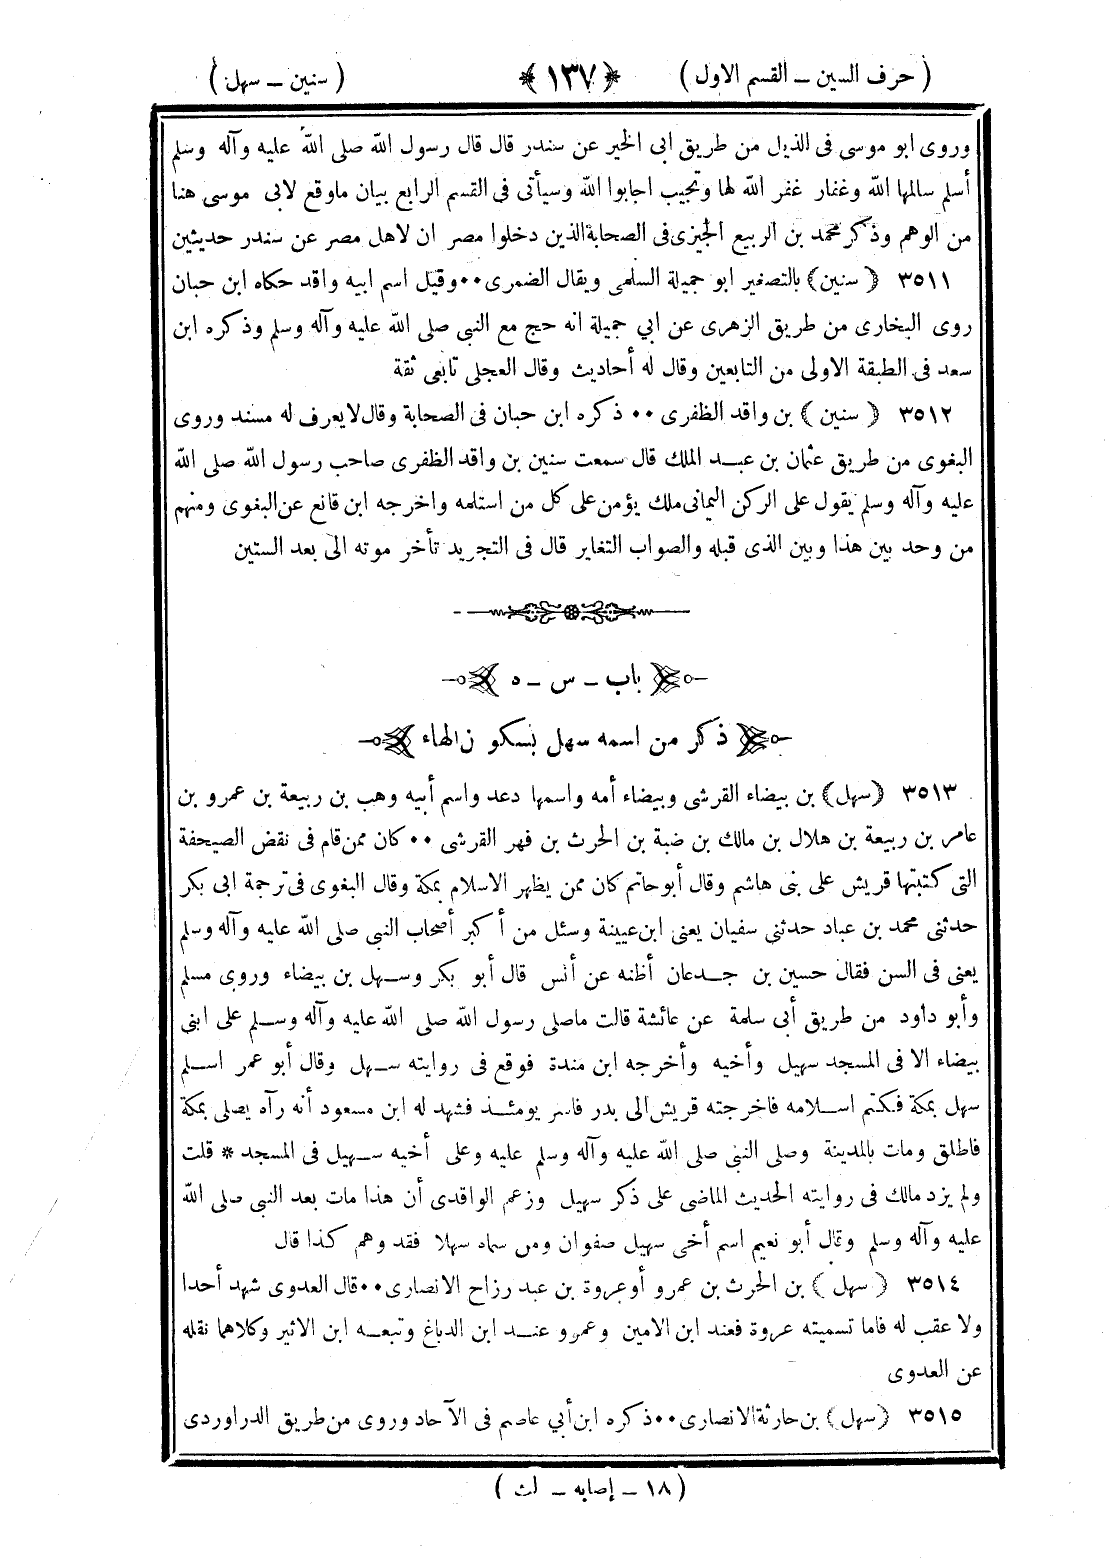 ( حرف السين ـ القسم الاول ) ﴿ ١٣٧ ﴾ ( سنين ـ سهل )
وروى ابو موسى فى الذيل من طريق ابى الخير عن سندر قال قال رسول الله صلى الله عليه وآله وسلم
أسلم سالمها الله وغفار غفر الله لها وتجيب اجابوا الله وسيأتى فى القسم الرابع بيان ماوقع لابى موسى هنا
من الوهم وذكر محمد بن الربيع الجيزى فى الصحابة الذين دخلوا مصر ان لاهل مصر عن سندر حديثين
٣٥١١ ﴿ سنين ﴾ بالتصغير ابو جميلة السلمى ويقال الضمرى ٠٠ وقيل اسم ابيه واقد حكاه ابن حبان
روى البخارى من طريق الزهرى عن ابي جميلة انه حج مع النبى صلى الله عليه وآله وسلم وذكره ابن
سعد فى الطبقة الاولى من التابعين وقال له أحاديث وقال العجلى تابعى ثقة
٣٥١٢ ﴿ سنين ﴾ بن واقد الظفرى ٠٠ ذكره ابن حبان فى الصحابة وقال لا يعرف له مسند وروى
البغوى من طريق عثمان بن عبد الملك قال سمعت سنين بن واقد الظفرى صاحب رسول الله صلى الله
عليه وآله وسلم يقول على الركن اليمانى ملك يؤمن على كل من استلمه واخرجه ابن قانع عن البغوى ومنهم
من وحد بين هذا وبين الذى قبله والصواب التغاير قال فى التجريد تأخر موته الى بعد الستين
باب ـ س ـ ه
ذكر من اسمه سهل بسكون الهاء
٣٥١٣ ﴿ سهل ﴾ بن بيضاء القرشى وبيضاء أمه واسمها دعد واسم أبيه وهب بن ربيعة بن عمرو بن
عامر بن ربيعة بن هلال بن مالك بن ضبة بن الحرث بن فهر القرشى ٠٠ كان ممن قام فى نقض الصحيفة
التى كتبتها قريش على بنى هاشم وقال أبو حاتم كان ممن يظهر الاسلام بمكة وقال البغوى فى ترجمة ابى بكر
حدثنى محمد بن عباد حدثنى سفيان يعنى ابن عيينة وسئل من أكبر أصحاب النبى صلى الله عليه وآله وسلم
يعنى فى السن فقال حسين بن جدعان أظنه عن أنس قال أبو بكر وسهل بن بيضاء وروى مسلم
وأبو داود من طريق أبى سلمة عن عائشة قالت ماصلى رسول الله صلى الله عليه وآله وسلم على ابنى
بيضاء الا فى المسجد سهيل وأخيه وأخرجه ابن مندة فوقع فى روايته سهل وقال أبو عمر اسلم
سهل بمكة فكتم اسلامه فاخرجته قريش الى بدر فاسر يومئذ فشهد له ابن مسعود أنه رآه يصلى بمكة
فاطلق ومات بالمدينة وصلى النبى صلى الله عليه وآله وسلم عليه وعلى أخيه سهيل فى المسجد * قلت
ولم يزد مالك فى روايته الحديث الماضى على ذكر سهيل وزعم الواقدى أن هذا مات بعد النبى صلى الله
عليه وآله وسلم وقال أبو نعيم اسم أخى سهيل صفوان ومن سماه سهلا فقد وهم كذا قال
٣٥١٤ ﴿ سهل ﴾ بن الحرث بن عمرو أو عروة بن عبد رزاح الانصارى ٠٠ قال العدوى شهد أحدا
ولا عقب له فاما تسميته عروة فعند ابن الامين وعمرو عند ابن الدباغ وتبعه ابن الاثير وكلاهما نقله
عن العدوى
٣٥١٥ ﴿ سهل ﴾ بن حارثة الانصارى ٠٠ ذكره ابن أبي عاصم فى الآحاد وروى من طريق الدراوردى
( ١٨ ـ إصابه ـ لث )